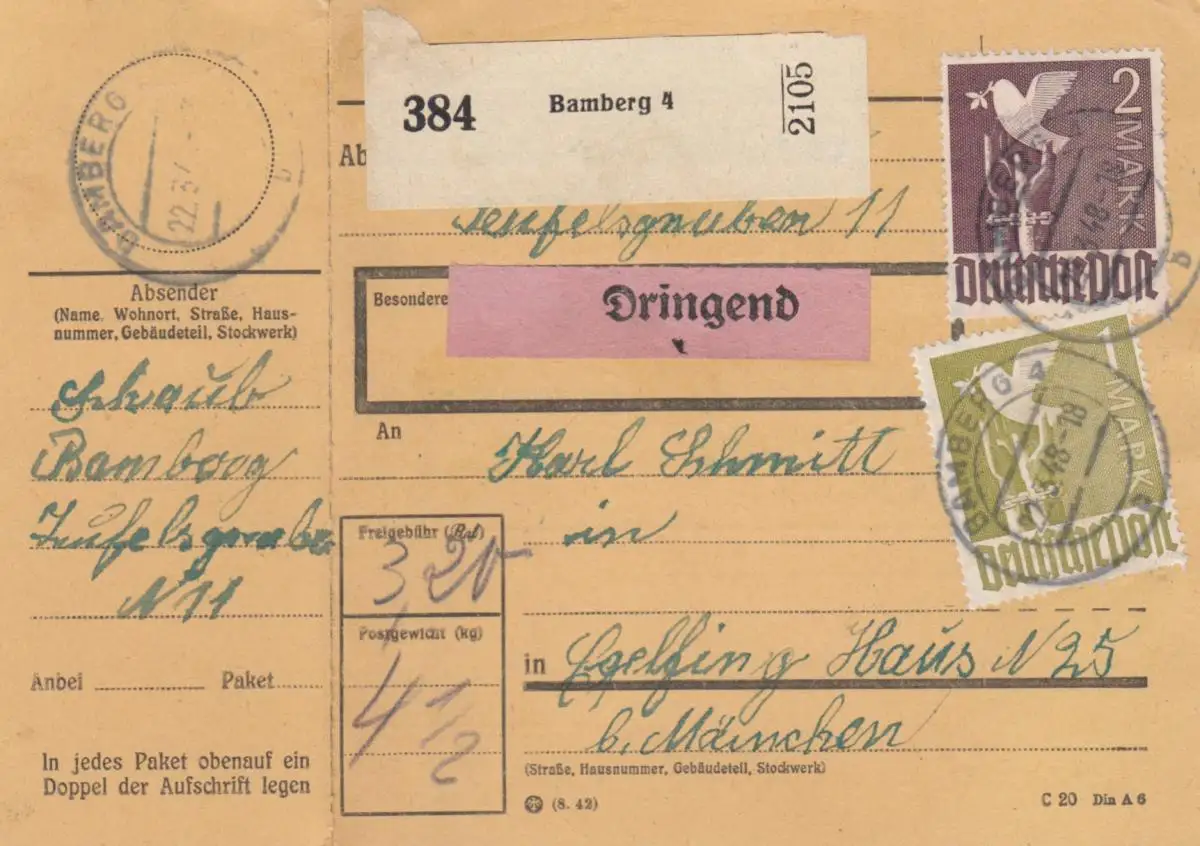 BAMBERG
b
Absender
(Name, Wohnort, Straße, Haus-
nummer, Gebäudeteil, Stockwerk)
Schaub
Bamberg
Teufelsgraben
N 11
Anbei Paket
In jedes Paket obenauf ein
Doppel der Aufschrift legen
384 Bamberg 4 2105
Ab
Teufelsgraben 11
Besondere
Dringend
An
Karl Schmitt
in
Freigebühr (Rpf)
3,20
Postgewicht (kg)
4 1/2
in Egelfing Haus N 25
b. München
(Straße, Hausnummer, Gebäudeteil, Stockwerk)
(8. 42)
C 20 Din A 6
2 MARK
Deutsche Post
48-18
b
1 MARK
Deutsche Post
BAMBERG 4
3.48-18